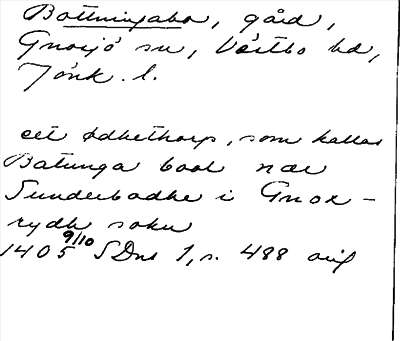 Bottningabo, gård,
Gnosjö sn, Västbo hd,
Jönk. l.
eet ødhethorp, som kallas
Batunga bool nær
Sunderbodhe i Gnox-
rydh sokn
1405 9/10 SDns 1, s. 488 orig